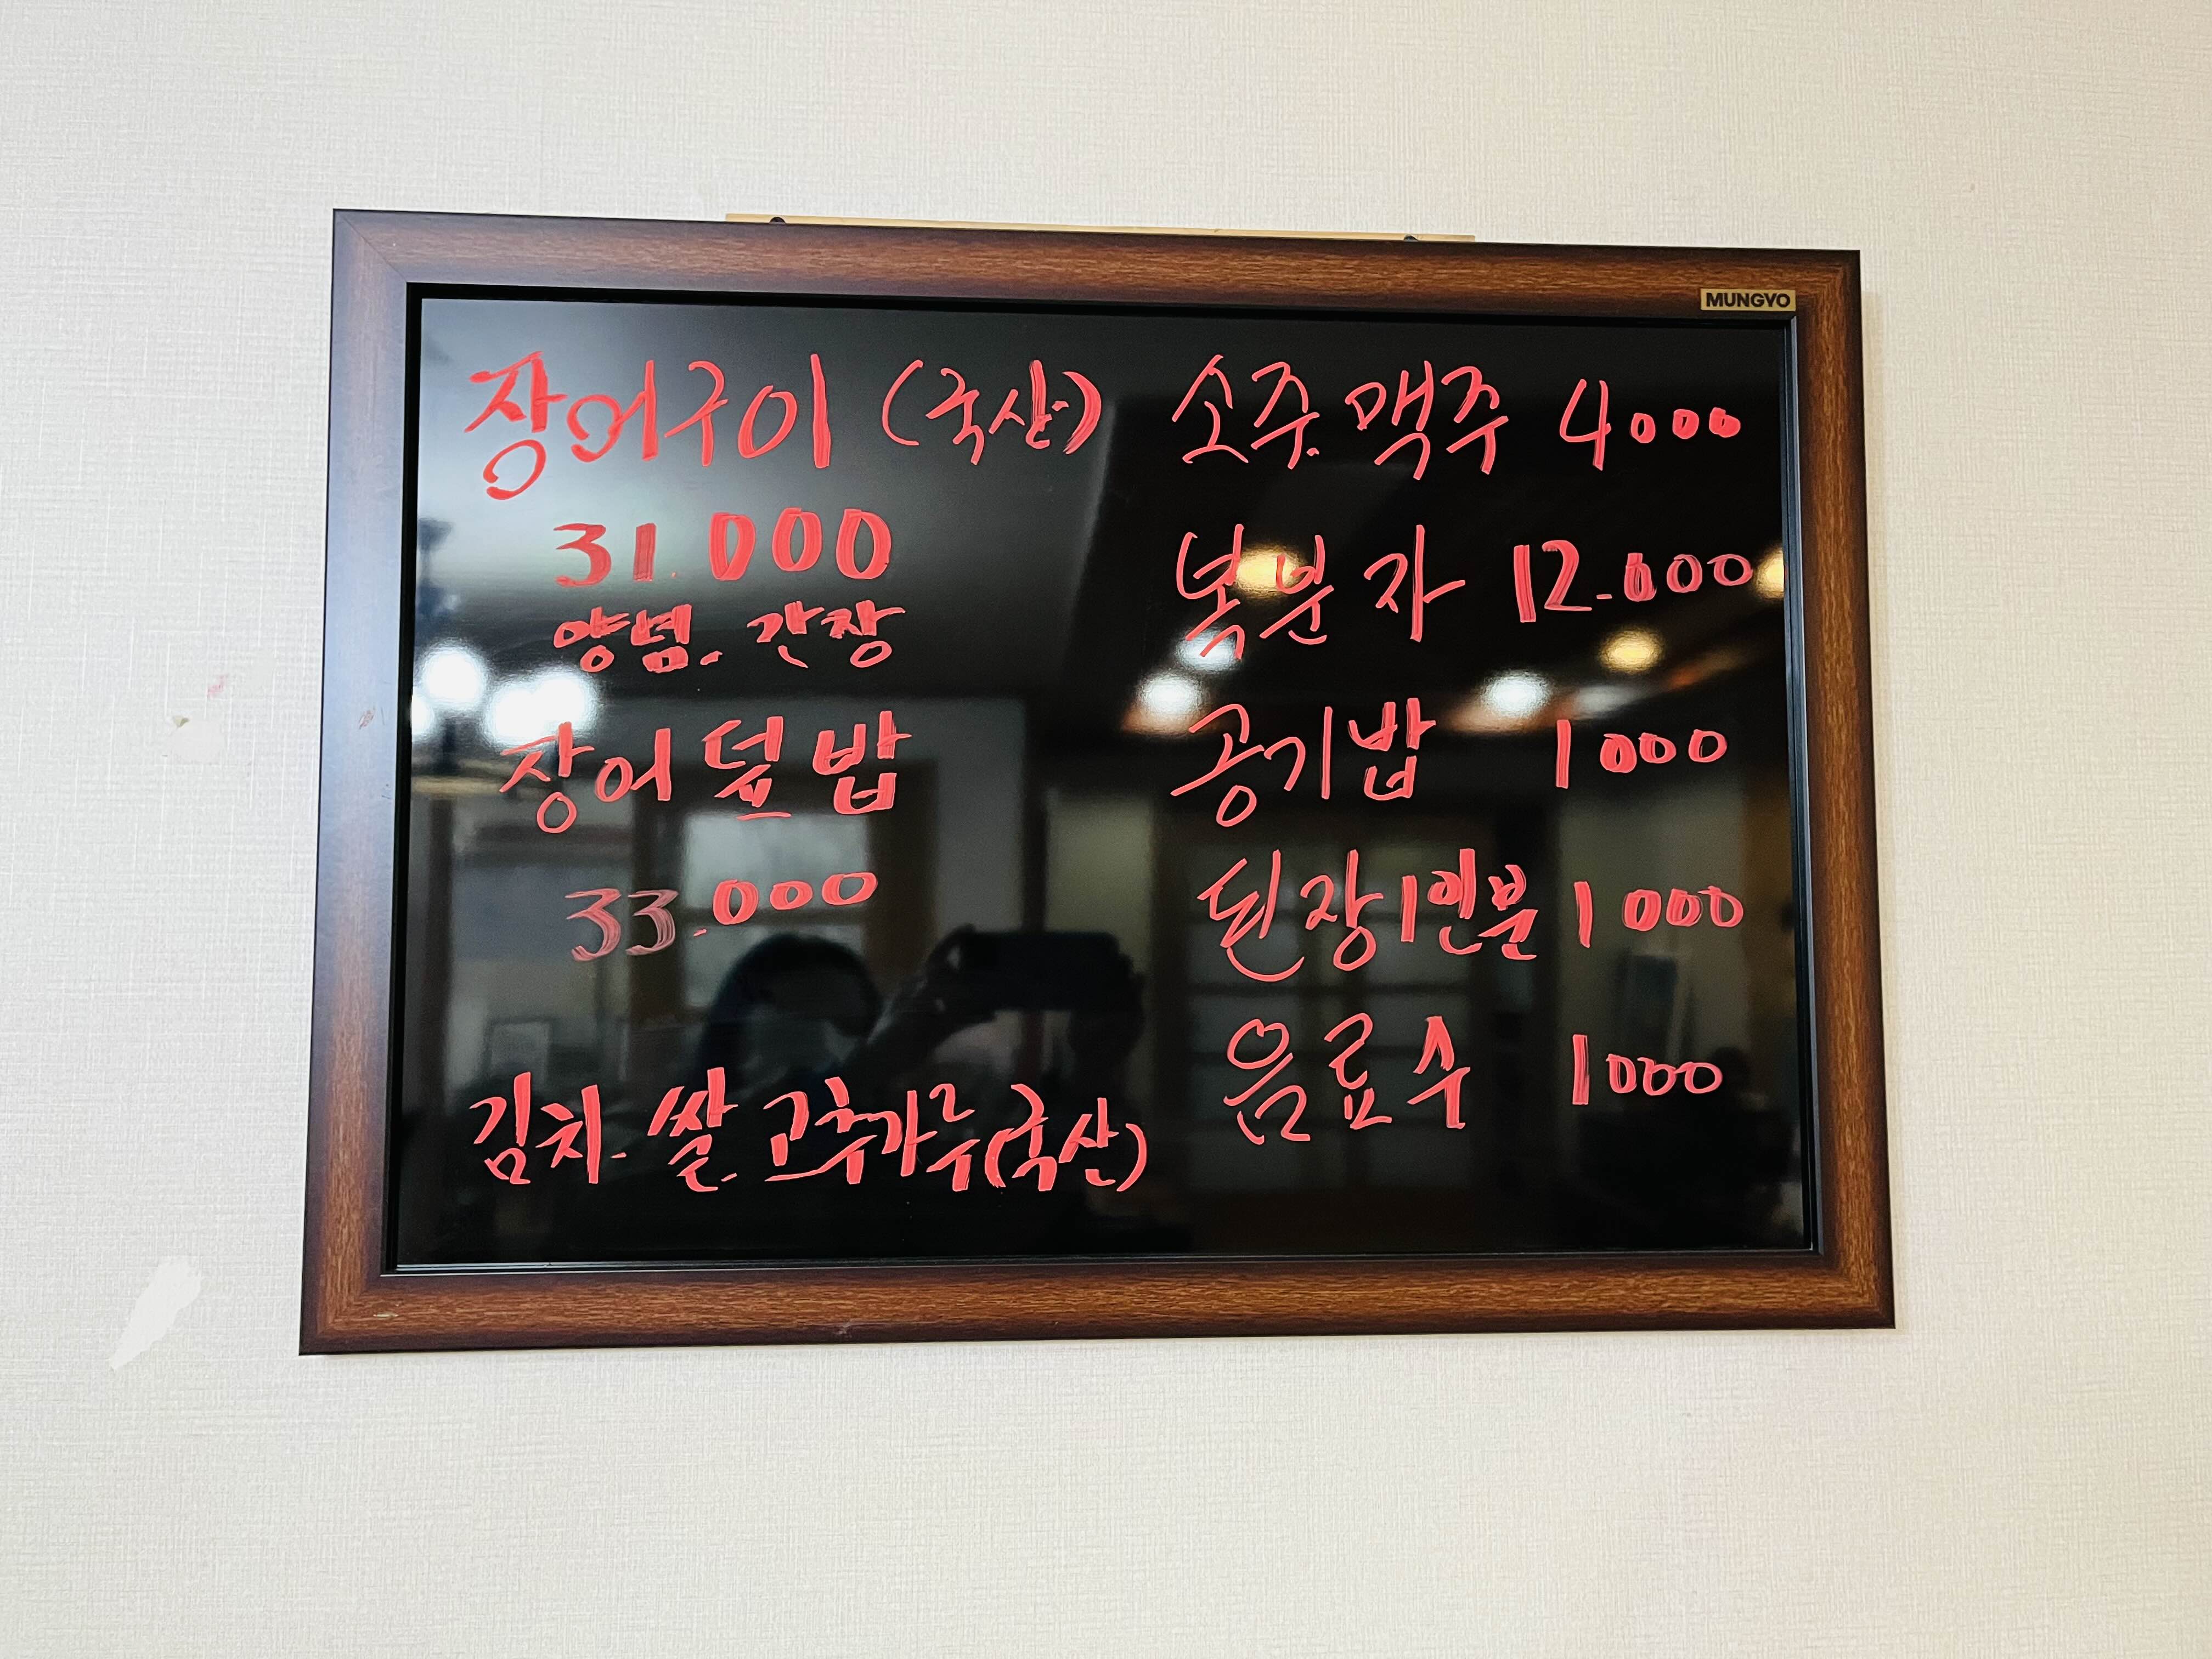 MUNGYO
장어구이 (국산)
31.000
양념. 간장
장어 덮밥
33.000
김치. 쌀. 고추가루(국산)
소주. 맥주 4000
복분자 12.000
공기밥 1000
된장1인분 1000
음료수 1000